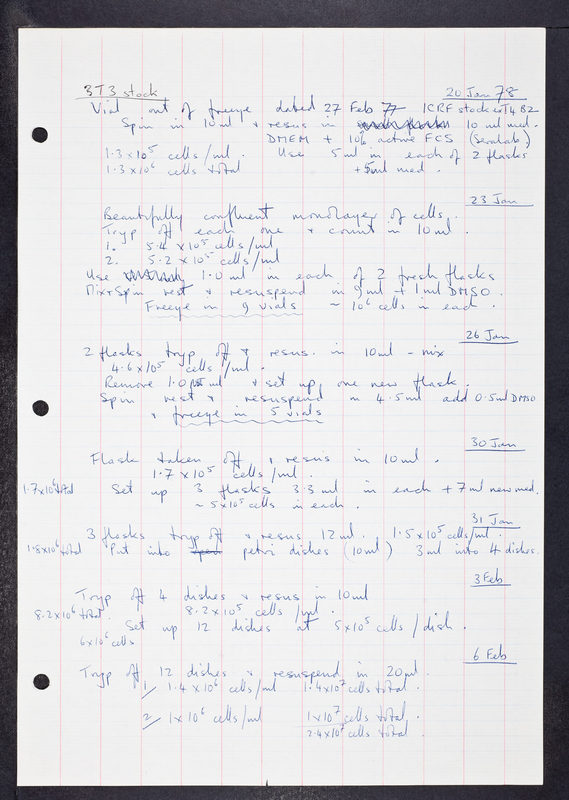 3T3 stock 20 Jan 78
Vial out of freeze dated 27 Feb 77 ICRF stock
Spin in 10 ml + resus in 10 ml med.
DMEM + 10% active FCS (Seralab)
1.3 x 10⁵ cells/ml. Use 5ml in each of 2 flasks
1.3 x 10⁶ cells total +5ml med.
23 Jan
Beautifully confluent monolayer of cells.
Tryp off each one + count in 10 ml.
1. 5.4 x 10⁵ cells/ml
2. 5.2 x 10⁵ cells/ml
Use 1.0 ml in each of 2 fresh flasks
Mix + Spin rest + resuspend in 9 ml + 1 ml DMSO.
Freeze in 9 vials ~ 10⁶ cells in each.
26 Jan
2 flasks tryp off + resus. in 10ml - mix
4.6 x 10⁵ cells/ml.
Remove 1.0 ml + set up one new flask.
Spin rest + resuspend in 4.5 ml add 0.5ml DMSO
+ freeze in 5 vials
30 Jan
Flask taken off + resus in 10 ml.
1.7 x 10⁵ cells/ml.
1.7x10⁶ total Set up 3 flasks 3.3 ml in each + 7 ml new med.
~ 5x10⁵ cells in each.
31 Jan
3 flasks tryp off + resus 12ml. 1.5 x 10⁵ cells/ml.
1.8x10⁶ total Put into petri dishes (10ml) 3ml into 4 dishes.
3 Feb
Tryp off 4 dishes + resus in 10ml
8.2x10⁶ total. 8.2 x 10⁵ cells/ml.
Set up 12 dishes at 5x10⁵ cells/dish.
6x10⁶ cells
6 Feb
Tryp off 12 dishes + resuspend in 20ml.
1/ 1.4 x 10⁶ cells/ml 1.4x10⁷ cells total.
2/ 1x10⁶ cells/ml 1x10⁷ cells total.
2.4x10⁷ cells total.